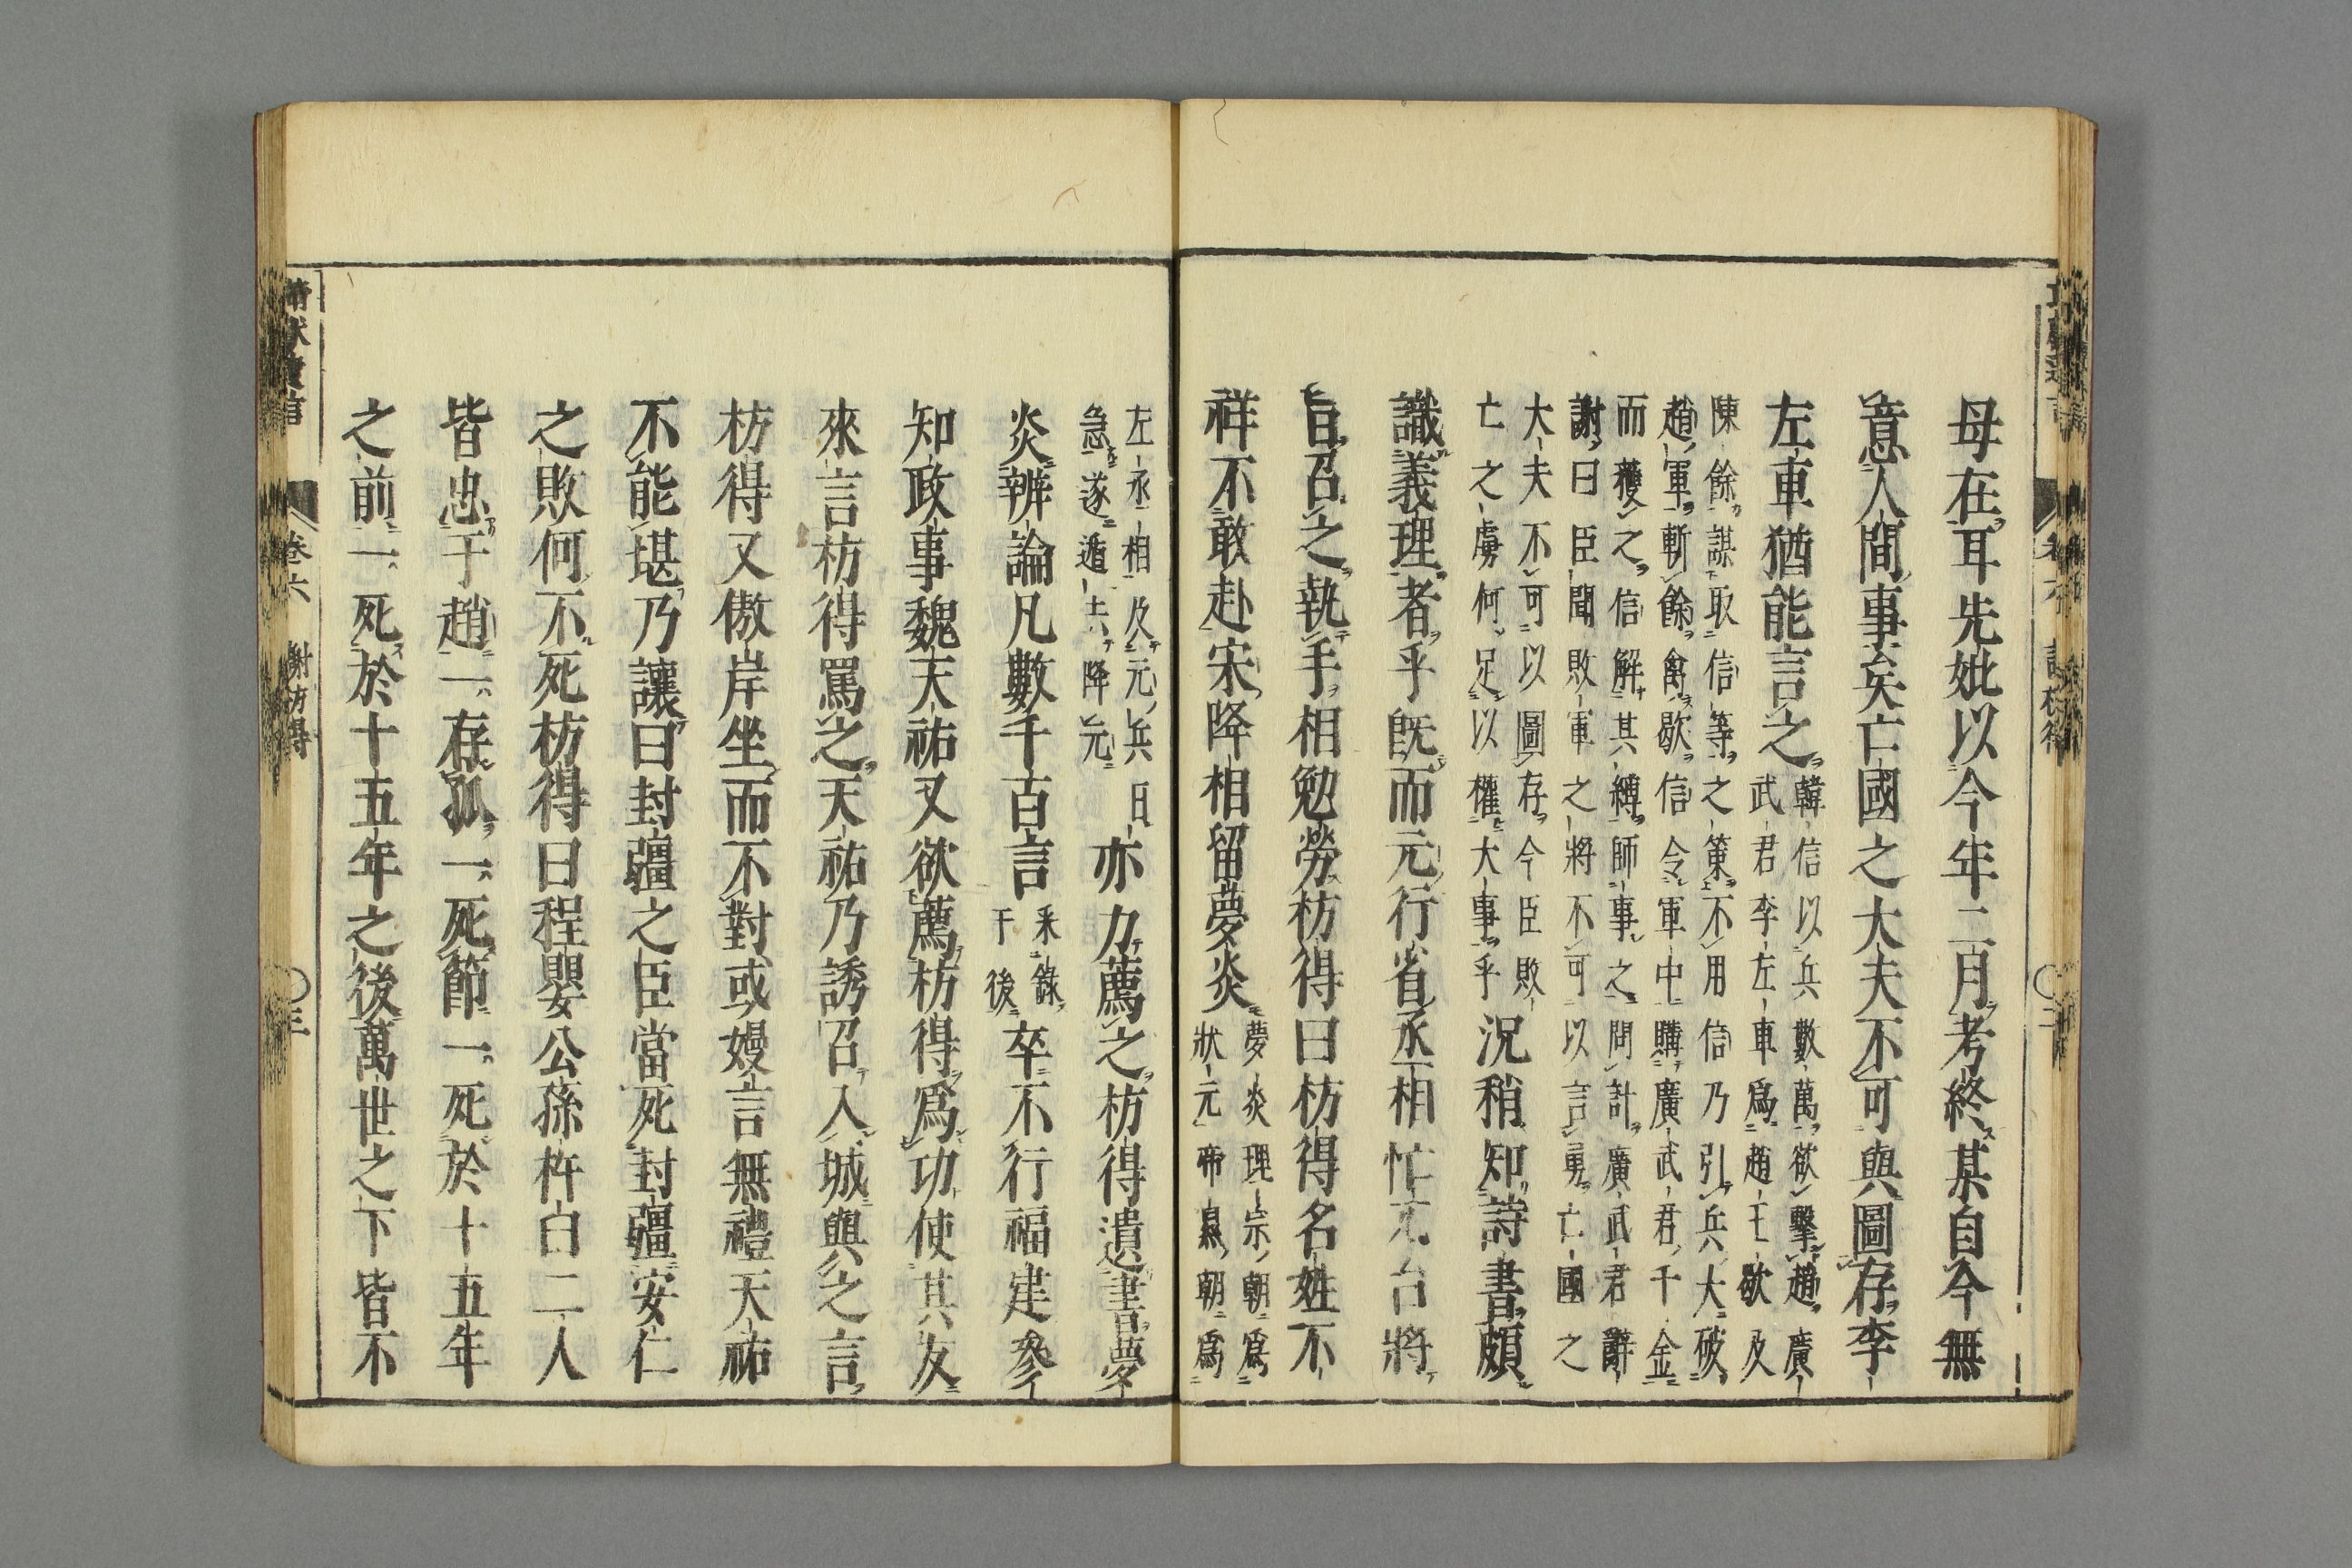 母在耳先妣以今年二月考終某自今無
意人間事矣亡國之大夫不可與圖存李
左車猶能言之
韓信以兵數萬欲擊趙廣
武君李左車爲趙王歇及
陳餘謀取信等之策不用信乃引兵大破
趙軍斬餘禽歇信令軍中購廣武君千金
而獲之信解其縛師事之問計廣武君辭
謝曰臣聞敗軍之將不可以言勇亡國之
大夫不可以圖存今臣敗
亡之虜何足以權大事乎
況稍知詩書頗
識義理者乎既而元行省丞相忙兀台將
旨召之執手相勉勞枋得曰枋得名姓不
祥不敢赴宋降相留夢炎
夢炎理宗朝爲
狀元帝㬎朝爲
左丞相及元兵日
急遂遁去降元
亦力薦之枋得遺書夢
炎辨論凡數千百言
采錄
于後
卒不行福建參
知政事魏天祐又欲薦枋得爲功使其友
來言枋得罵之天祐乃誘召入城與之言
枋得又傲岸坐而不對或嫚言無禮天祐
不能堪乃讓曰封疆之臣當死封疆安仁
之敗何不死枋得曰程嬰公孫杵臼二人
皆忠于趙一存孤一死節一死於十五年
之前一死於十五年之後萬世之下皆不
靖獻遺言 卷六 謝枋得 〇三